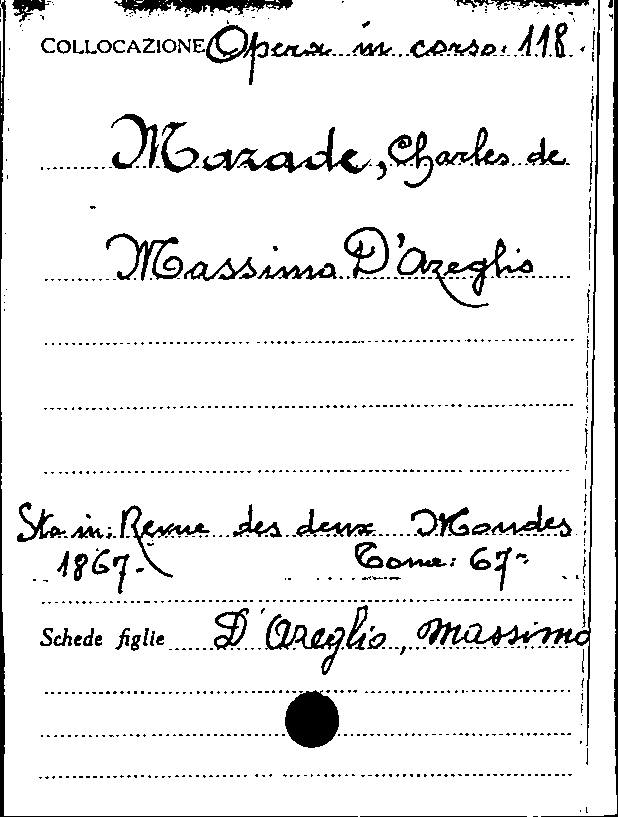 COLLOCAZIONE Opera in corso. 118.
Mazade, Charles de
Massimo D'Azeglio
Sta in: Revue des deux Mondes
1867. Tome: 67
Schede figlie D'Azeglio, Massimo